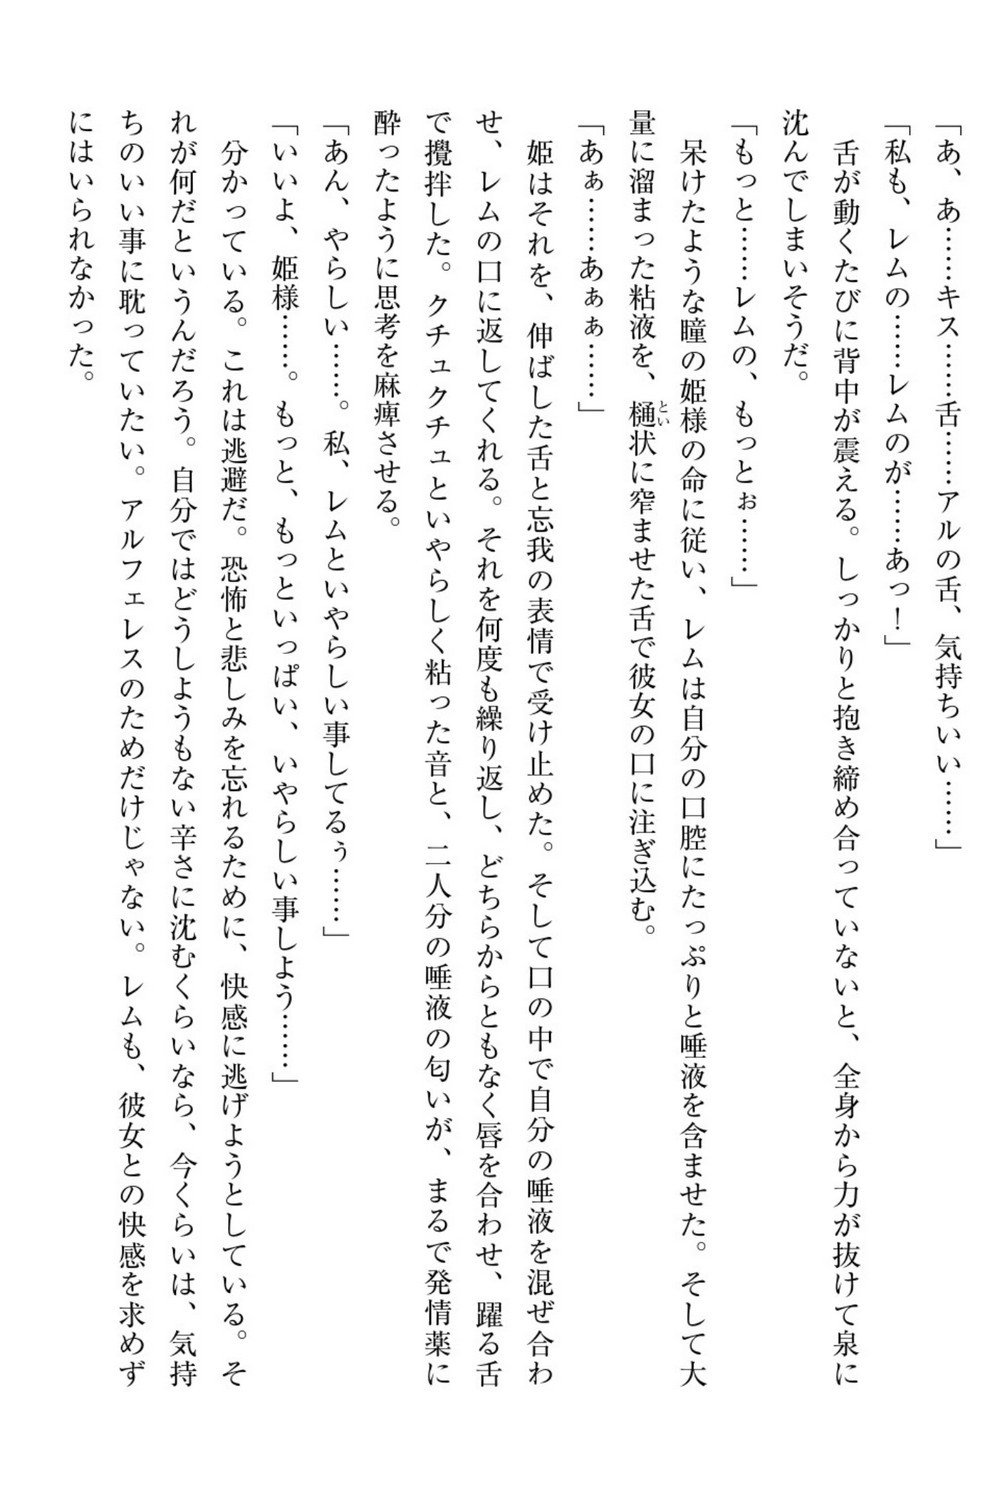 「あ、あ……キス……舌……アルの舌、気持ちいい……」
「私も、レムの……レムのが……あっ！」
　舌が動くたびに背中が震える。しっかりと抱き締め合っていないと、全身から力が抜けて泉に
沈んでしまいそうだ。
「もっと……レムの、もっとぉ……」
　呆けたような瞳の姫様の命に従い、レムは自分の口腔にたっぷりと唾液を含ませた。そして大
量に溜まった粘液を、樋状に窄ませた舌で彼女の口に注ぎ込む。
とい
「あぁ……あぁぁ……」
　姫はそれを、伸ばした舌と忘我の表情で受け止めた。そして口の中で自分の唾液を混ぜ合わ
せ、レムの口に返してくれる。それを何度も繰り返し、どちらからともなく唇を合わせ、躍る舌
で攪拌した。クチュクチュといやらしく粘った音と、二人分の唾液の匂いが、まるで発情薬に
酔ったように思考を麻痺させる。
「あん、やらしい……。私、レムといやらしい事してるぅ……」
「いいよ、姫様……。もっと、もっといっぱい、いやらしい事しよう……」
　分かっている。これは逃避だ。恐怖と悲しみを忘れるために、快感に逃げようとしている。そ
れが何だというんだろう。自分ではどうしようもない辛さに沈むくらいなら、今くらいは、気持
ちのいい事に耽っていたい。アルフェレスのためだけじゃない。レムも、彼女との快感を求めず
にはいられなかった。